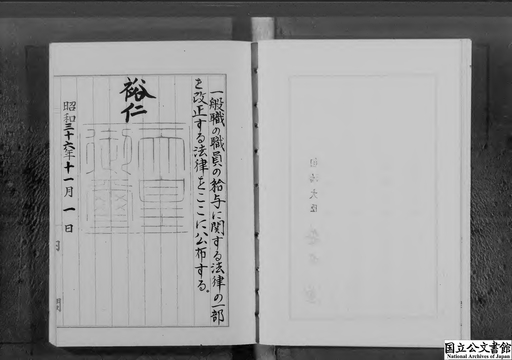 一般職の職員の給与に関する法律の一部
を改正する法律をここに公布する。
裕仁
天皇
御璽
昭和三十六年十一月一日
国立公文書館
National Archives of Japan